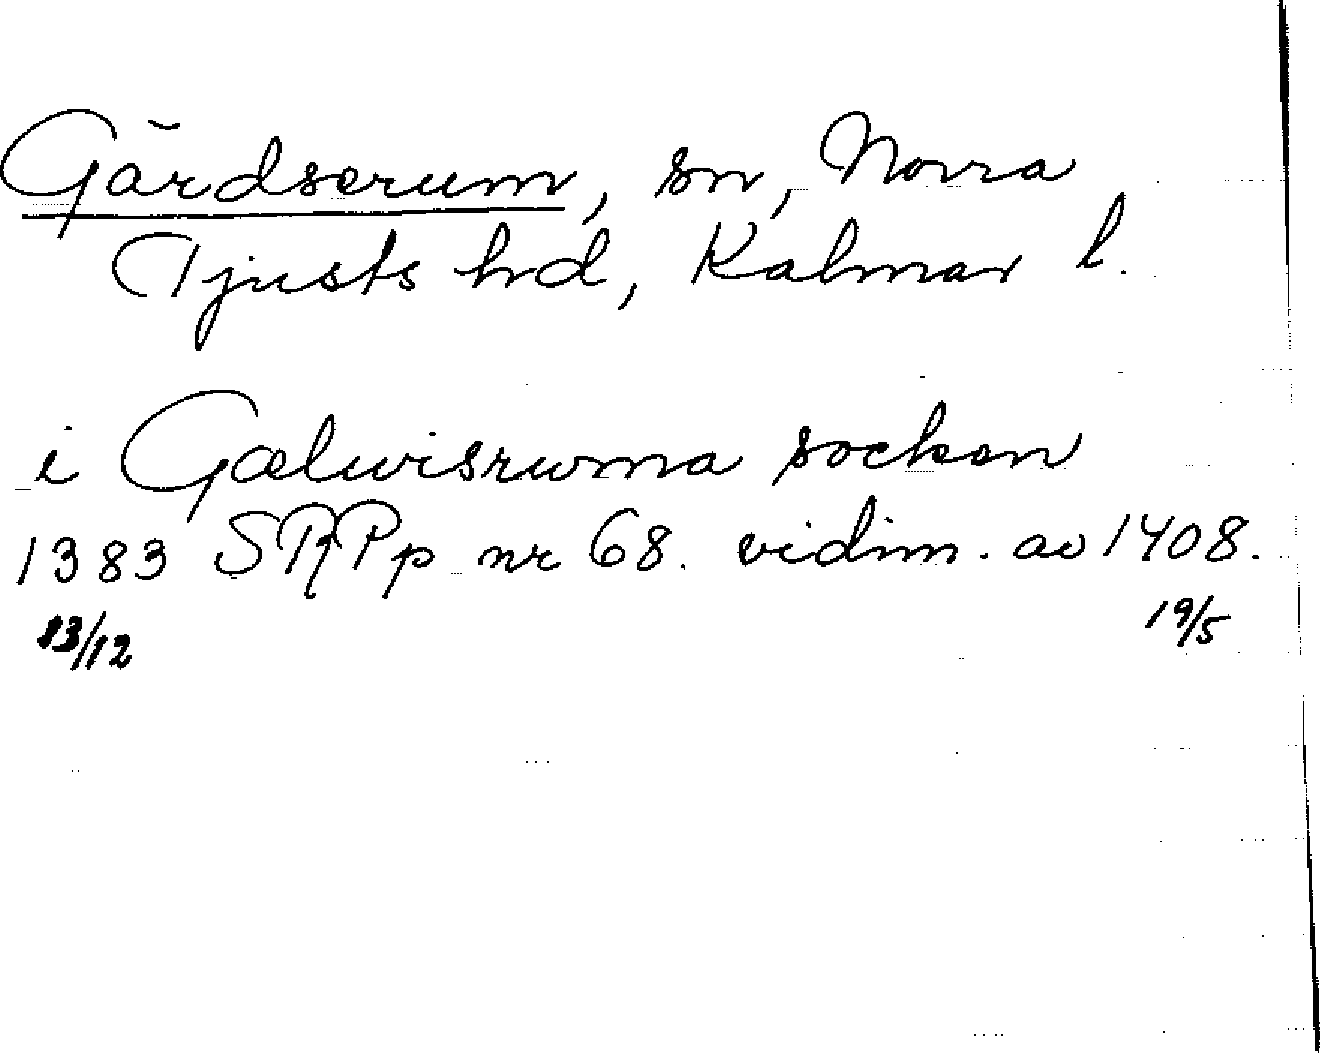 Gärdserum, sn, Norra
Tjusts hd, Kalmar l.
i Gælwisrwma socken
1383 SRPp nr 68. vidim. av 1408.
13/12 19/5